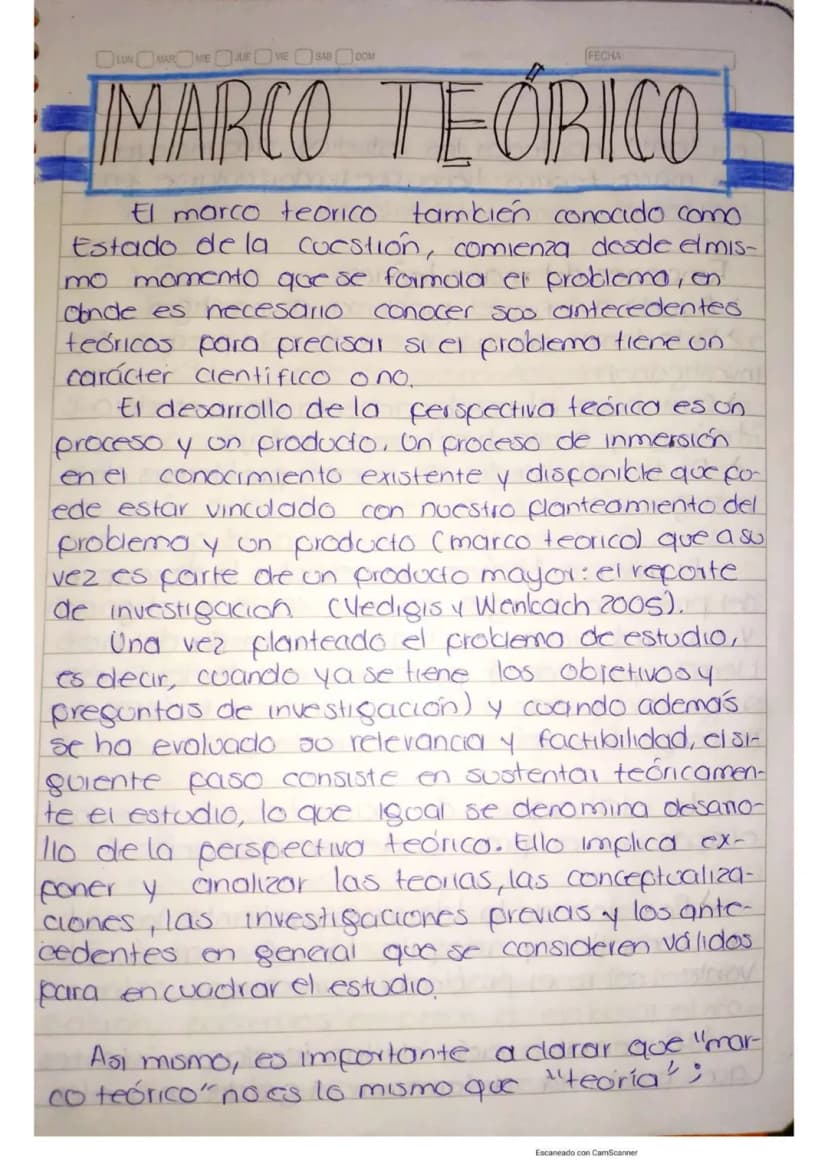 LUN MAR MIE JUE VIE SAB DOM
FECHA
MARCO TEÓRICO
El marco teorico también conocido como
Estado de la cuestión, comienza desde el mis-
mo momento que se formula el problema, en
donde es necesario conocer sus antecedentes
teóricos para precisar si el problema tiene un
carácter cientifico o no.
El desarrollo de la perspectiva teórica es un
proceso y un producto. Un proceso de inmersión
en el conocimiento existente y disponible que pu-
ede estar vinculado con nuestro planteamiento del
problema y un producto (marco teorico) que a su
vez es parte de un producto mayor: el reporte
de investigacion (Yedigis y Weinbach 2005).
Una vez planteado el problema de estudio,
es decir, cuando ya se tiene los objetivos y
preguntas de investigación) y cuando además
se ha evaluado su relevancia y factibilidad, el si-
guiente paso consiste en sustentar teóricamen-
te el estudio, lo que igual se denomina desarro-
llo de la perspectiva teórica. Ello implica ex-
poner y analizar las teorias, las conceptualiza-
ciones, las investigaciones previas y los ante-
cedentes en general que se consideren válidos
para encuadrar el estudio.
Asi mismo, es importante aclarar que "mar-
co teórico" no es lo mismo que "teoría";
Escaneado con CamScanner